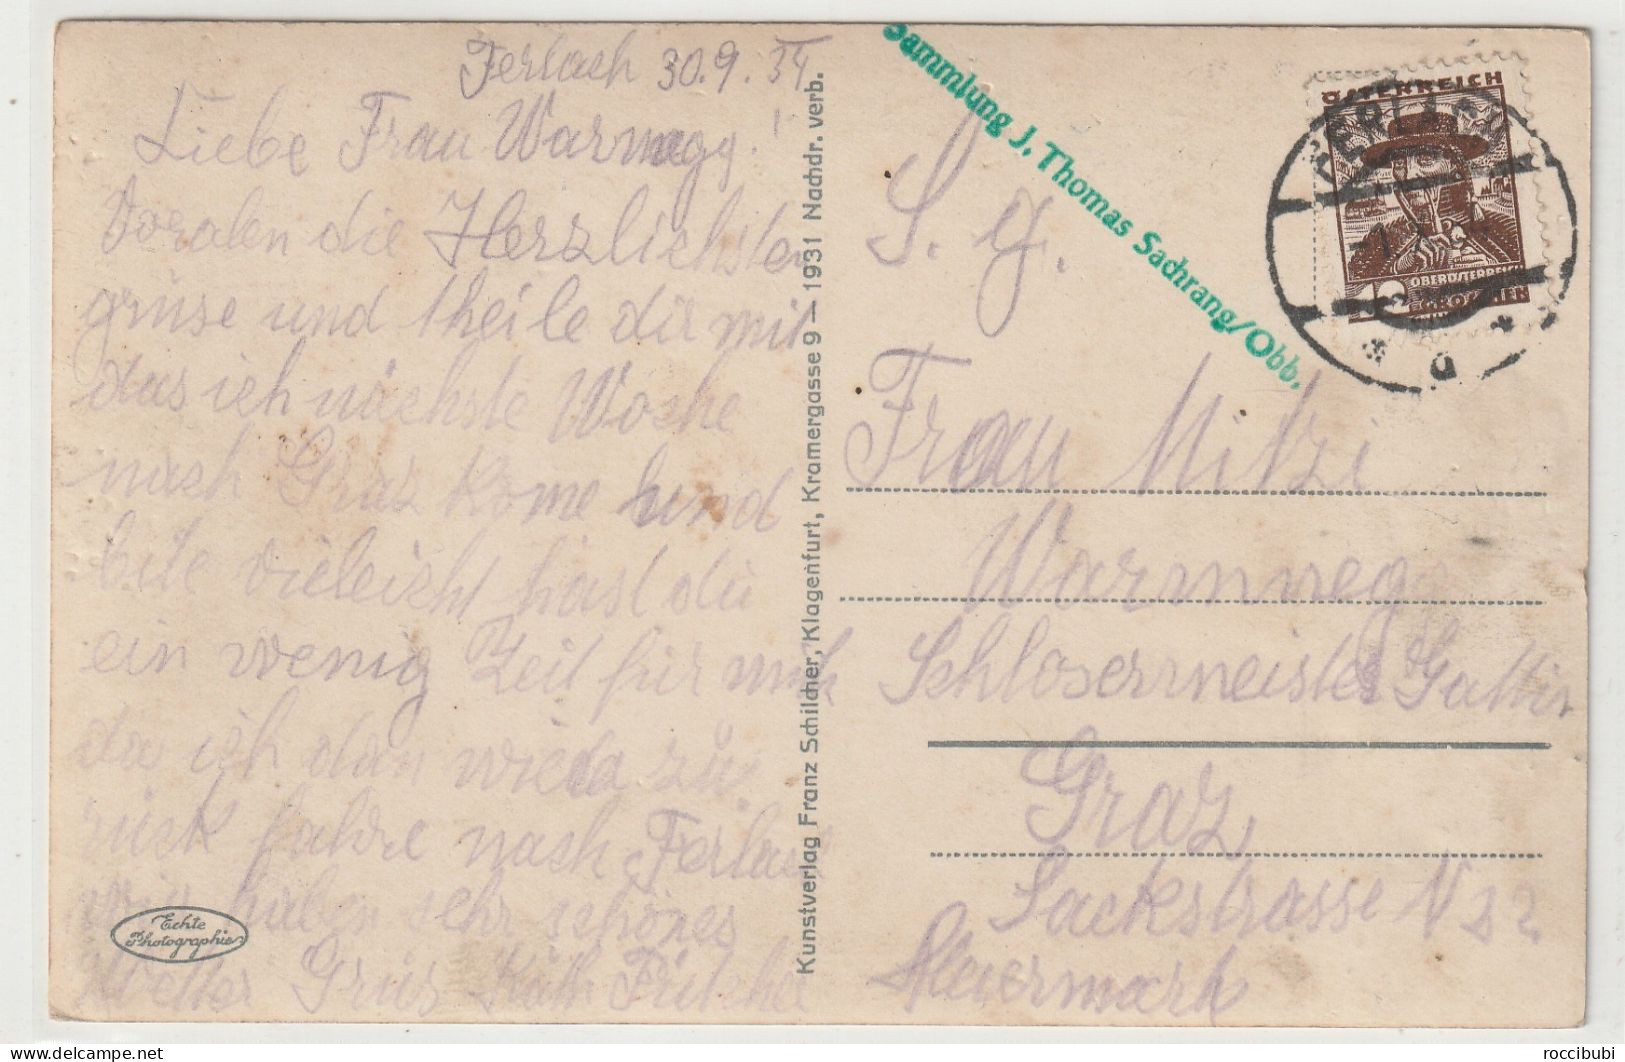 Ferlach 30.9.34
Liebe Frau Warnegg!
Voralen die Herzlichsten
grüse und theile dir mit
das ich nächste Woche
nach Graz kome und
bite vieleicht hast du
ein wenig Zeit für mich
da ich dan wieda zu
rück fahre nach Ferlach
wir haben sehr schönes
Wetter Grüs Käth
Echte
Photographie
Kunstverlag Franz Schilcher, Klagenfurt, Kramergasse 9 – 1931 Nachdr. verb.
Sammlung J. Thomas Sachrang/Obb.
ÖSTERREICH
OBERÖSTERREICH
GROSCHEN
FERLACH
S. g.
Frau Mitzi
Warnweg
Schlosermeisters Gattin
Graz
Sackstrasse N 32
Steiermark
delcampe.net
roccibubi